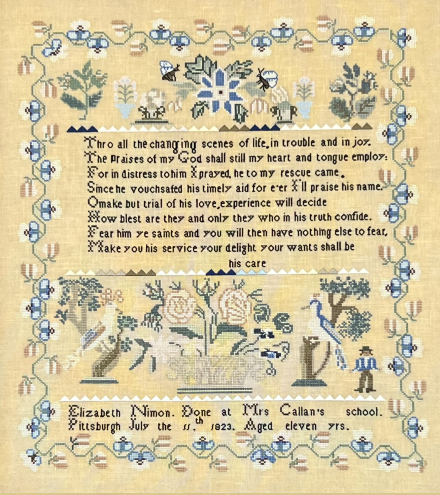 Thro all the changing scenes of life,in trouble and in joy.
The praises of my God shall still my heart and tongue employ:
For in distress to him I prayed, he to my rescue came.
Since he vouchsafed his timely aid for e'er I'll praise his name.
O make but trial of his love,experience will decide
How blest are they and only they who in his truth confide.
Fear him ye saints and you will then have nothing else to fear,
Make you his service your delight your wants shall be
his care
Elizabeth Nimon. Done at Mrs Callan's school.
Pittsburgh July the 11.th 1823. Aged eleven yrs.